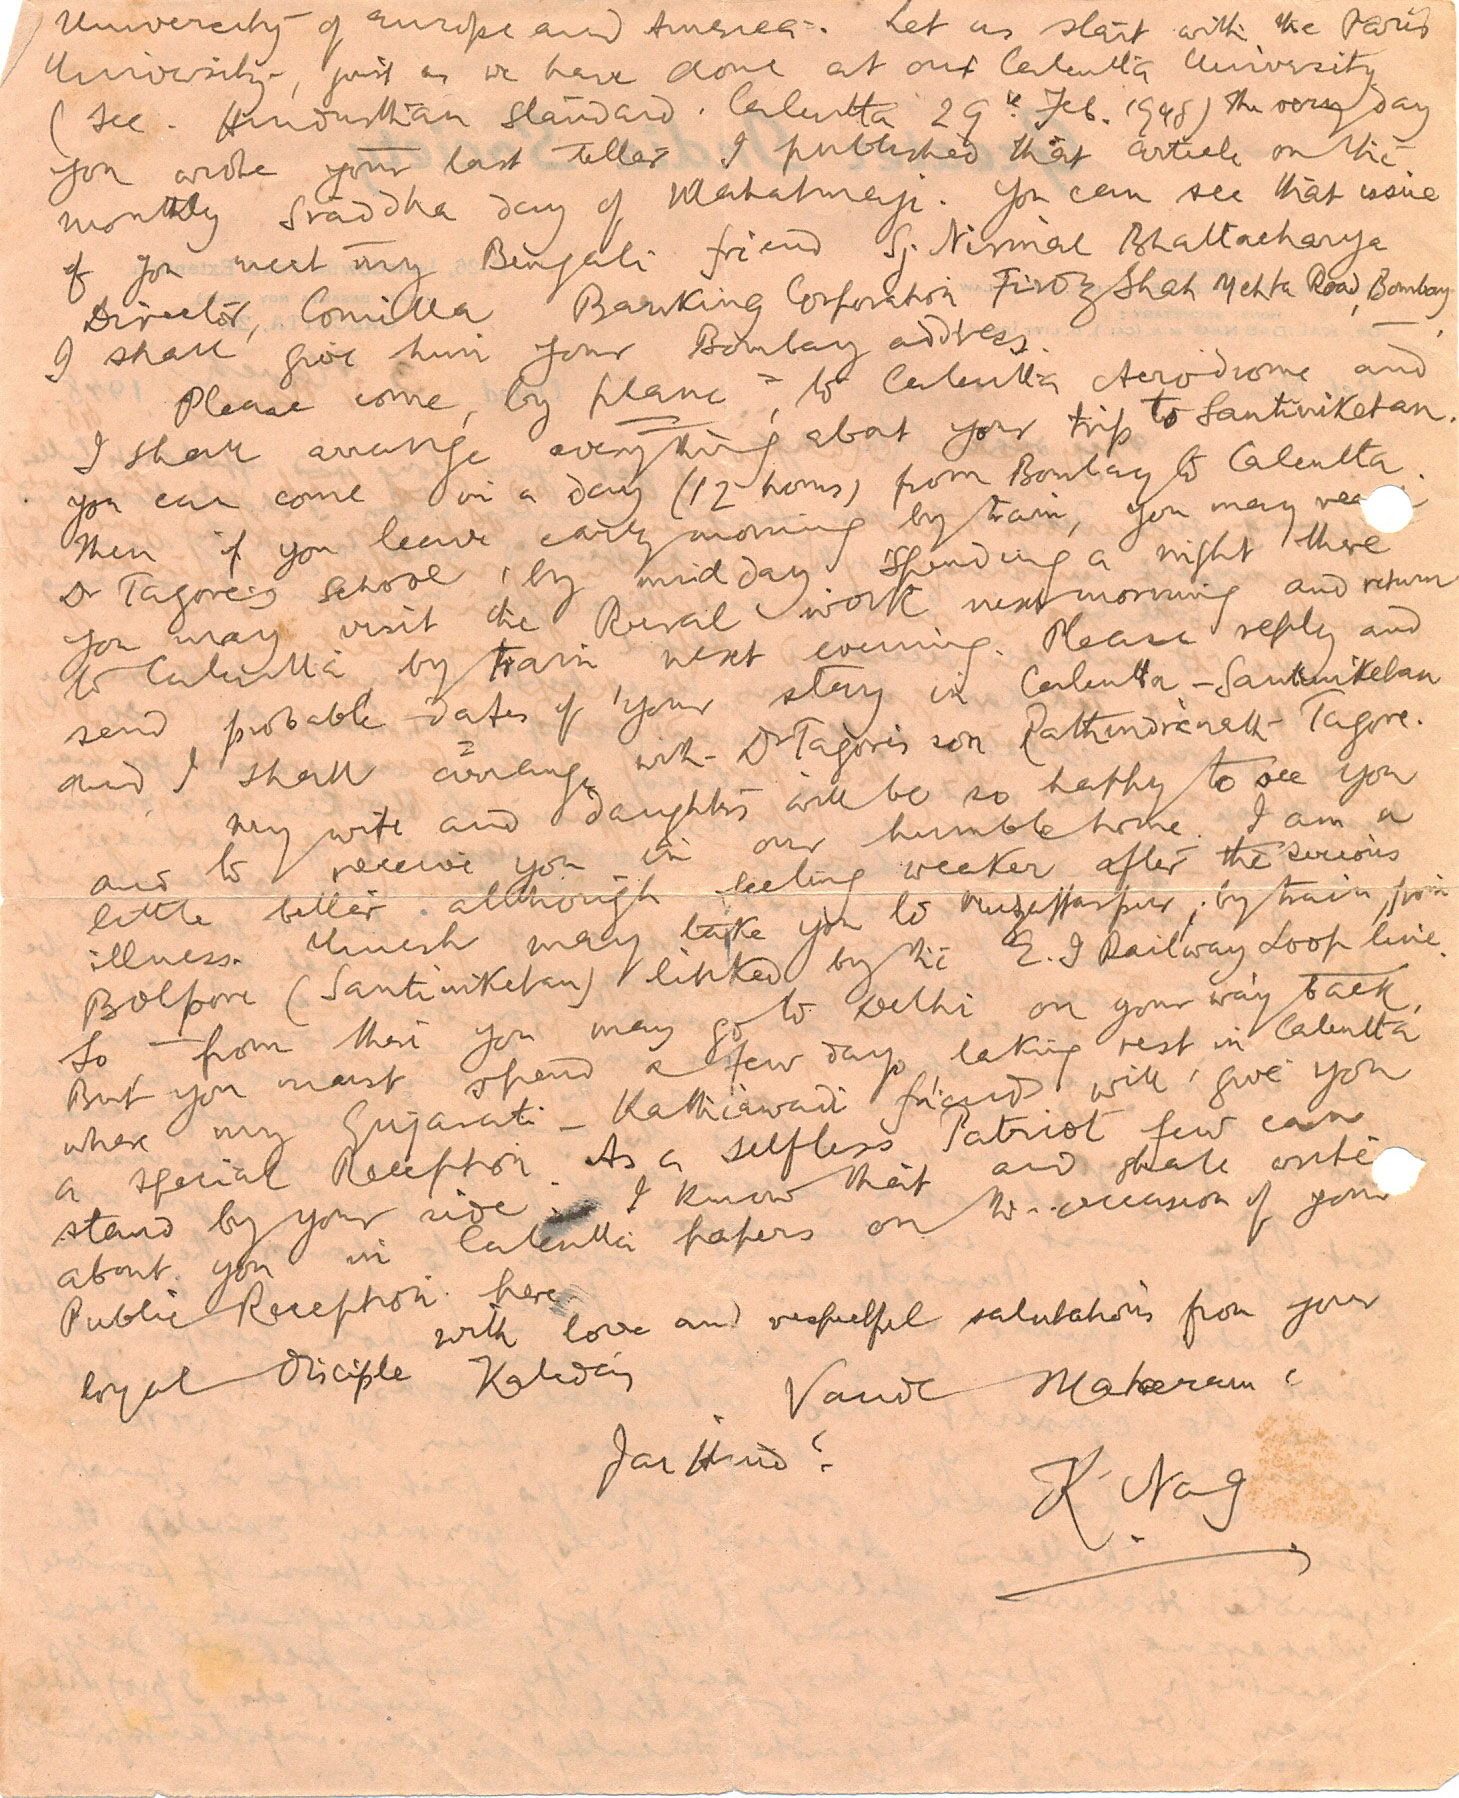 University of Europe and America. Let us start with the Paris
University, just as we have done at our Calcutta University
(See. Hindusthan Standard. Calcutta 29th Feb. 1948) the very day
you wrote your last letter I published that article on the
monthly Sraddha day of Mahatmaji. You can see that issue
if you meet my Bengali friend Sj. Nirmal Bhattacharya
Director, Comilla Banking Corporation Firoz Shah Mehta Road, Bombay.
I shall give him your Bombay address.
Please come, by plane, to Calcutta Aerodrome and
I shall arrange everything about your trip to Santiniketan.
you can come in a day (12 hours) from Bombay to Calcutta.
Then if you leave early morning by train, you may
Dr Tagore's School, by midday Spending a night there
you may visit the Rural work next morning and return
to Calcutta by train next evening. Please reply and
send probable dates of your stay in Calcutta - Santiniketan
and I shall arrange with Dr Tagore's son Rathindranath Tagore.
My wife and daughters will be so happy to see you
and to receive you in our humble home. I am a
little better although feeling weaker after the serious
illness. Umesh may take you to Muzaffarpur, by train, from
Bolpore (Santiniketan) linked by the E. I Railway Loop line.
So from there you may go to Delhi on your way back.
But you must spend a few days taking rest in Calcutta
where my Gujarati - Kathiawadi friends will give you
a special Reception. As a selfless Patriot few can
stand by your side. I know that and shall write
about you in Calcutta papers on the occasion of your
Public Reception here.
with love and respectful salutations from your
loyal Disciple Kalidas Vande Mataram!
Jai Hind!
K. Nag